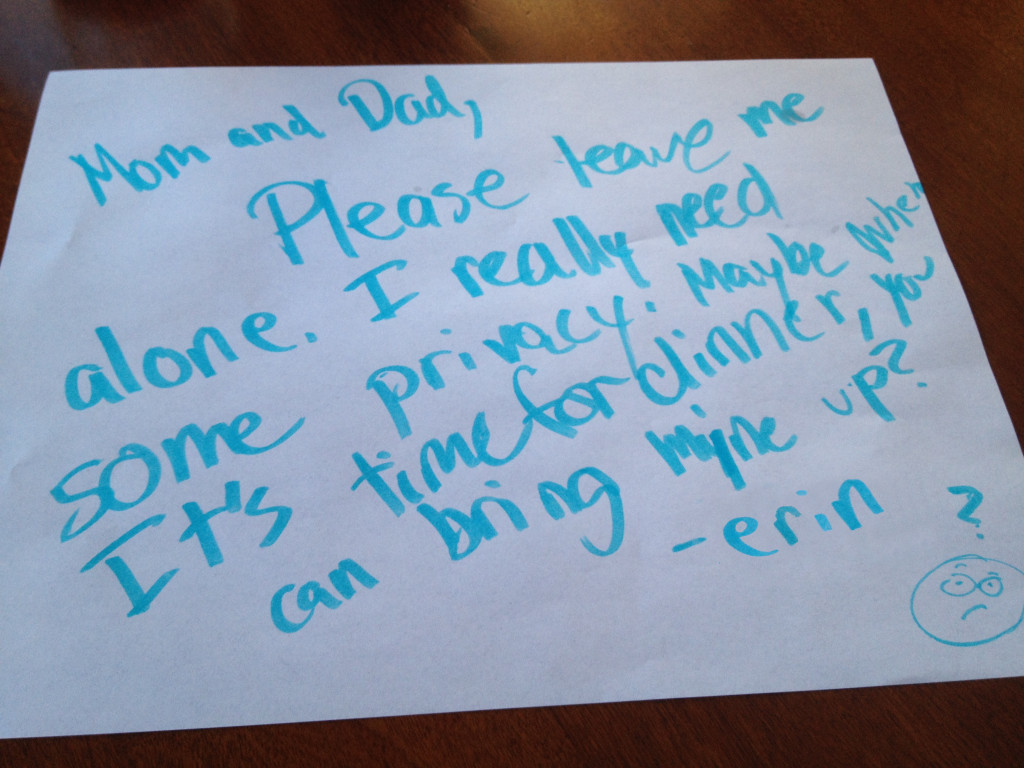 Mom and Dad,
Please leave me
alone. I really need
some privacy. Maybe when
It's time for dinner, you
can bring myne up?
-erin
?